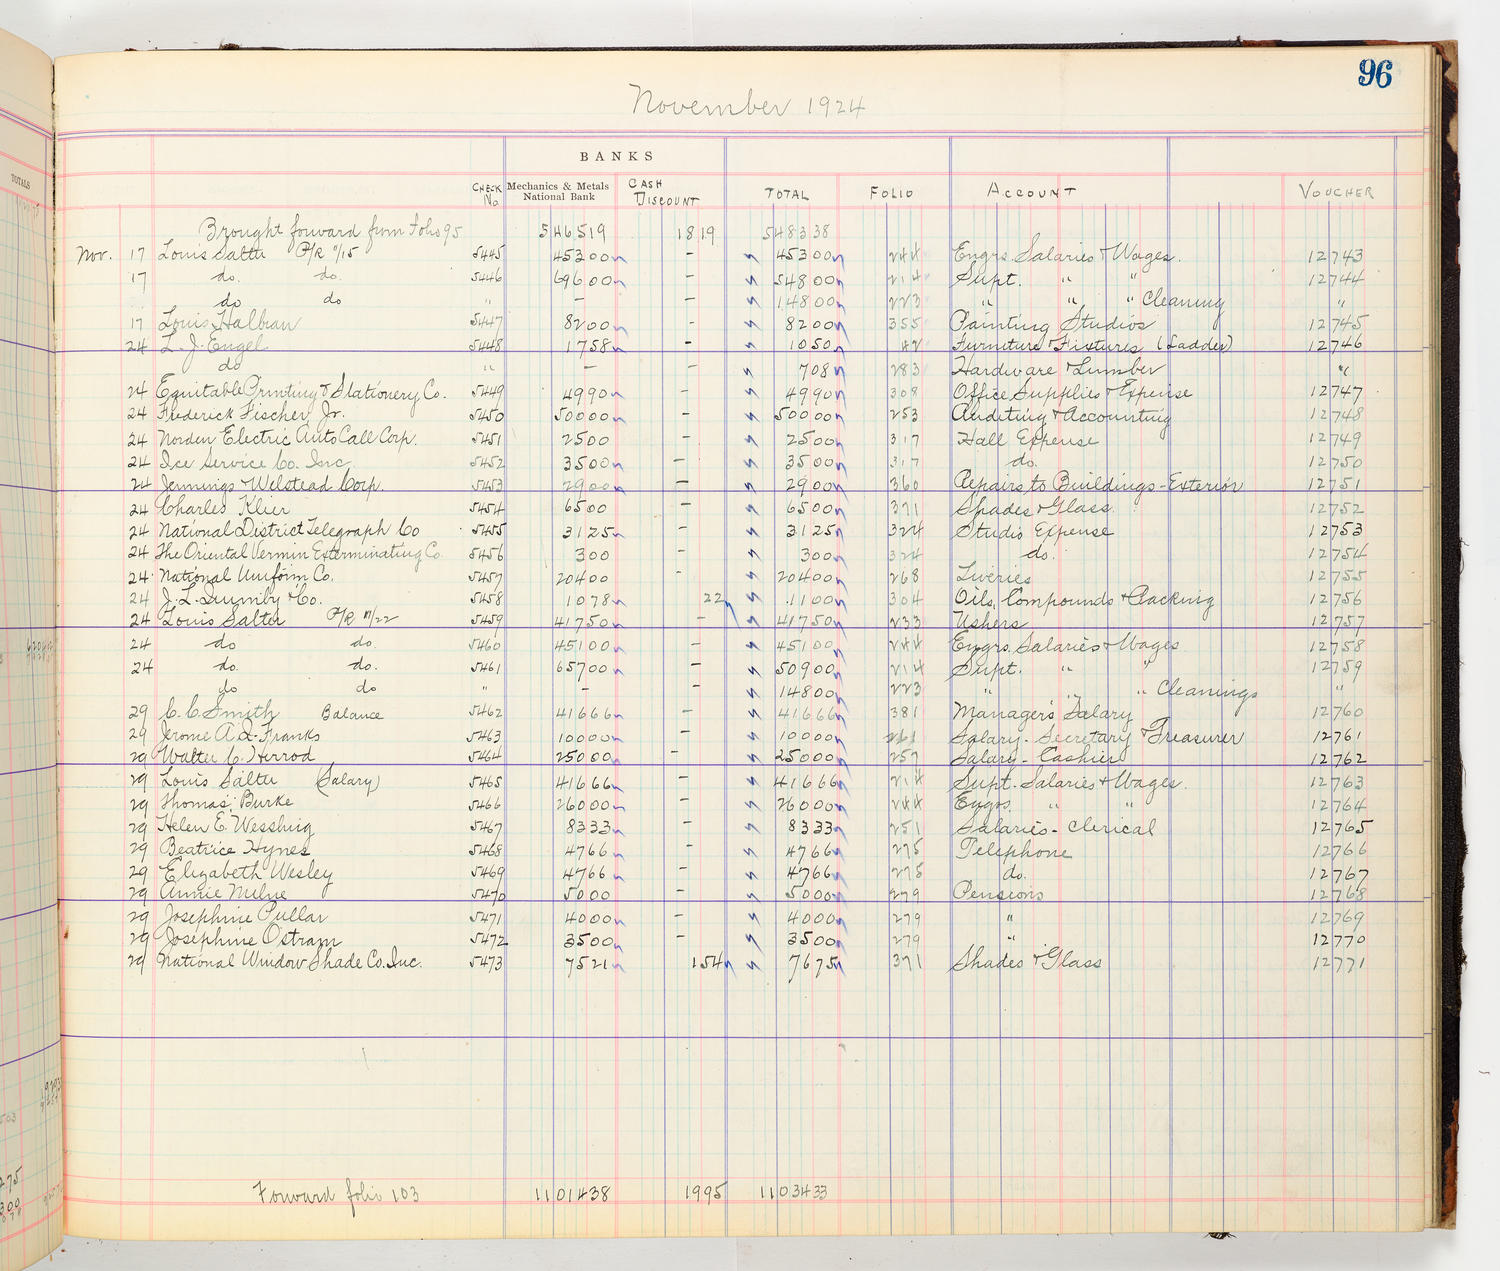 96
November 1924
BANKS
CHECK No. Mechanics & Metals National Bank CASH DISCOUNT TOTAL FOLIO ACCOUNT VOUCHER
TOTALS
Brought forward from Folio 95 546519 1819 548338
Nov. 17 Louis Salter P/R 11/15 5445 45300 - 45300 244 Engrs. Salaries & Wages. 12743
17 do. do. 5446 69600 - 54800 214 Supt. " " 12744
do do " - - 14800 223 " " " Cleaning "
17 Louis Halbran 5447 8200 - 8200 355 Painting Studios 12745
24 L. J. Engel 5448 1758 - 1050 42 Furniture & Fixtures (Ladder) 12746
do " - 708 283 Hardware & Lumber "
24 Equitable Printing & Stationery Co. 5449 4990 - 4990 308 Office Supplies & Expense 12747
24 Frederick Fischer, Jr. 5450 50000 - 50000 253 Auditing & Accounting 12748
24 Norden Electric Auto Call Corp. 5451 2500 - 2500 317 Hall Expense 12749
24 Ice Service Co. Inc. 5452 3500 - 3500 317 do. 12750
24 Jennings & Welstead Corp. 5453 2900 - 2900 360 Repairs to Buildings - Exterior 12751
24 Charles Klier 5454 6500 - 6500 371 Shades & Glass. 12752
24 National District Telegraph Co 5455 3125 - 3125 324 Studio Expense 12753
24 The Oriental Vermin Exterminating Co. 5456 300 - 300 324 do. 12754
24 National Uniform Co. 5457 20400 - 20400 268 Liveries 12755
24 J. L. Quimby & Co. 5458 1078 22 1100 304 Oils, Compounds & Packing 12756
24 Louis Salter P/R 11/22 5459 41750 - 41750 233 Ushers 12757
24 do do. 5460 45100 - 45100 244 Engrs. Salaries & Wages 12758
24 do. do. 5461 65700 - 50900 214 Supt. " " 12759
do do " - - 14800 223 " " " Cleanings "
29 C. C. Smith Balance 5462 41666 - 41666 381 Manager's Salary 12760
29 Jerome A. Q. Franks 5463 10000 - 10000 Salary - Secretary & Treasurer 12761
29 Walter C. Herrod 5464 25000 - 25000 257 Salary - Cashier 12762
29 Louis Salter (Salary) 5465 41666 - 41666 214 Supt. Salaries & Wages. 12763
29 Thomas Burke 5466 26000 - 26000 244 Engrs. " " 12764
29 Helen E. Wessling 5467 8333 - 8333 251 Salaries - Clerical 12765
29 Beatrice Hynes 5468 4766 - 4766 275 Telephone 12766
29 Elizabeth Wesley 5469 4766 - 4766 275 do. 12767
29 Annie Milne 5470 5000 - 5000 279 Pensions 12768
29 Josephine Pullar 5471 4000 - 4000 279 " 12769
29 Josephine Ostram 5472 3500 - 3500 279 " 12770
29 National Window Shade Co. Inc. 5473 7521 154 7675 371 Shades & Glass 12771
Forward folio 103 1101438 1995 1103433